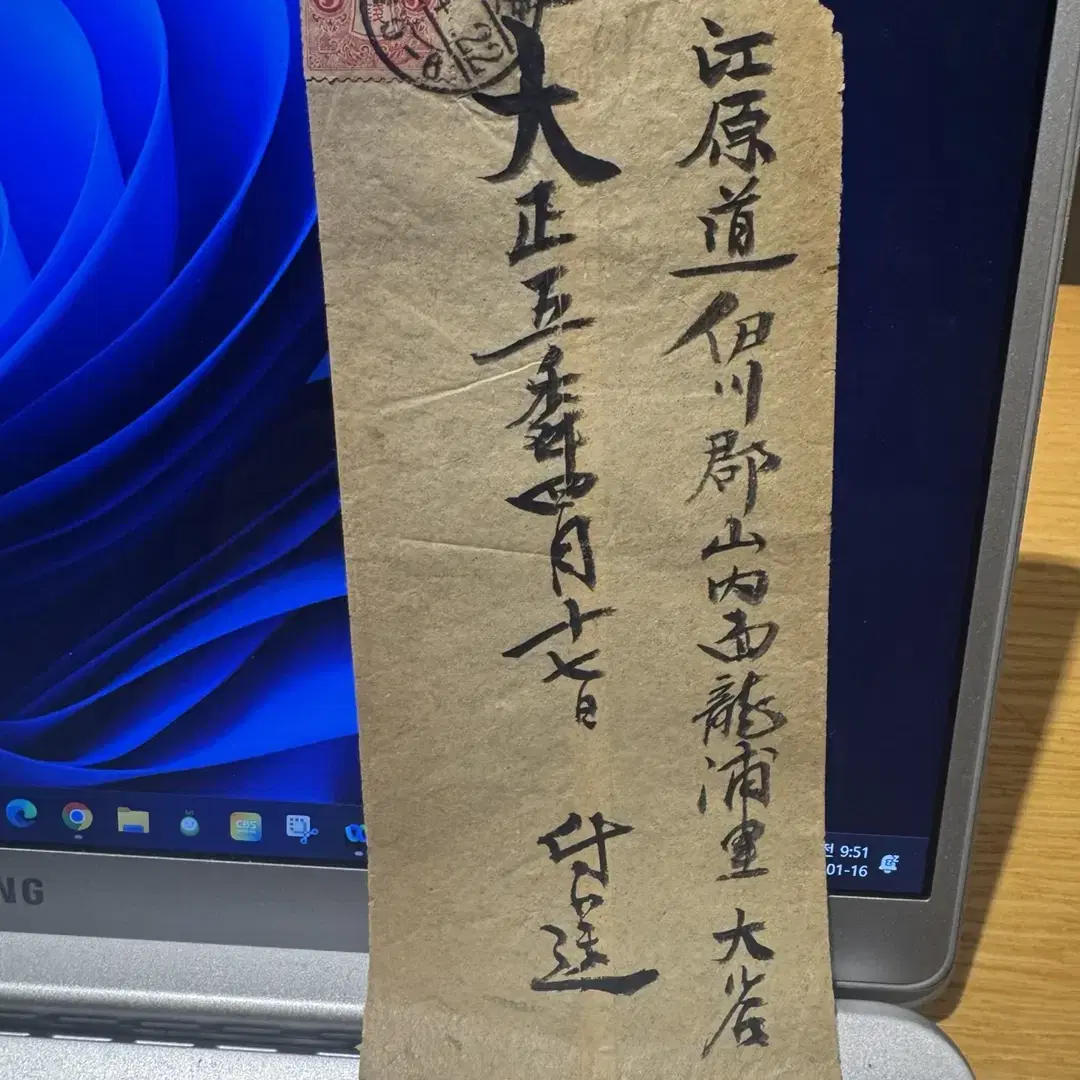 江原道伊川郡山內面龍浦里 大谷
大正五年四月十七日 付送
22
CBS
전 9:51
01-16
NG